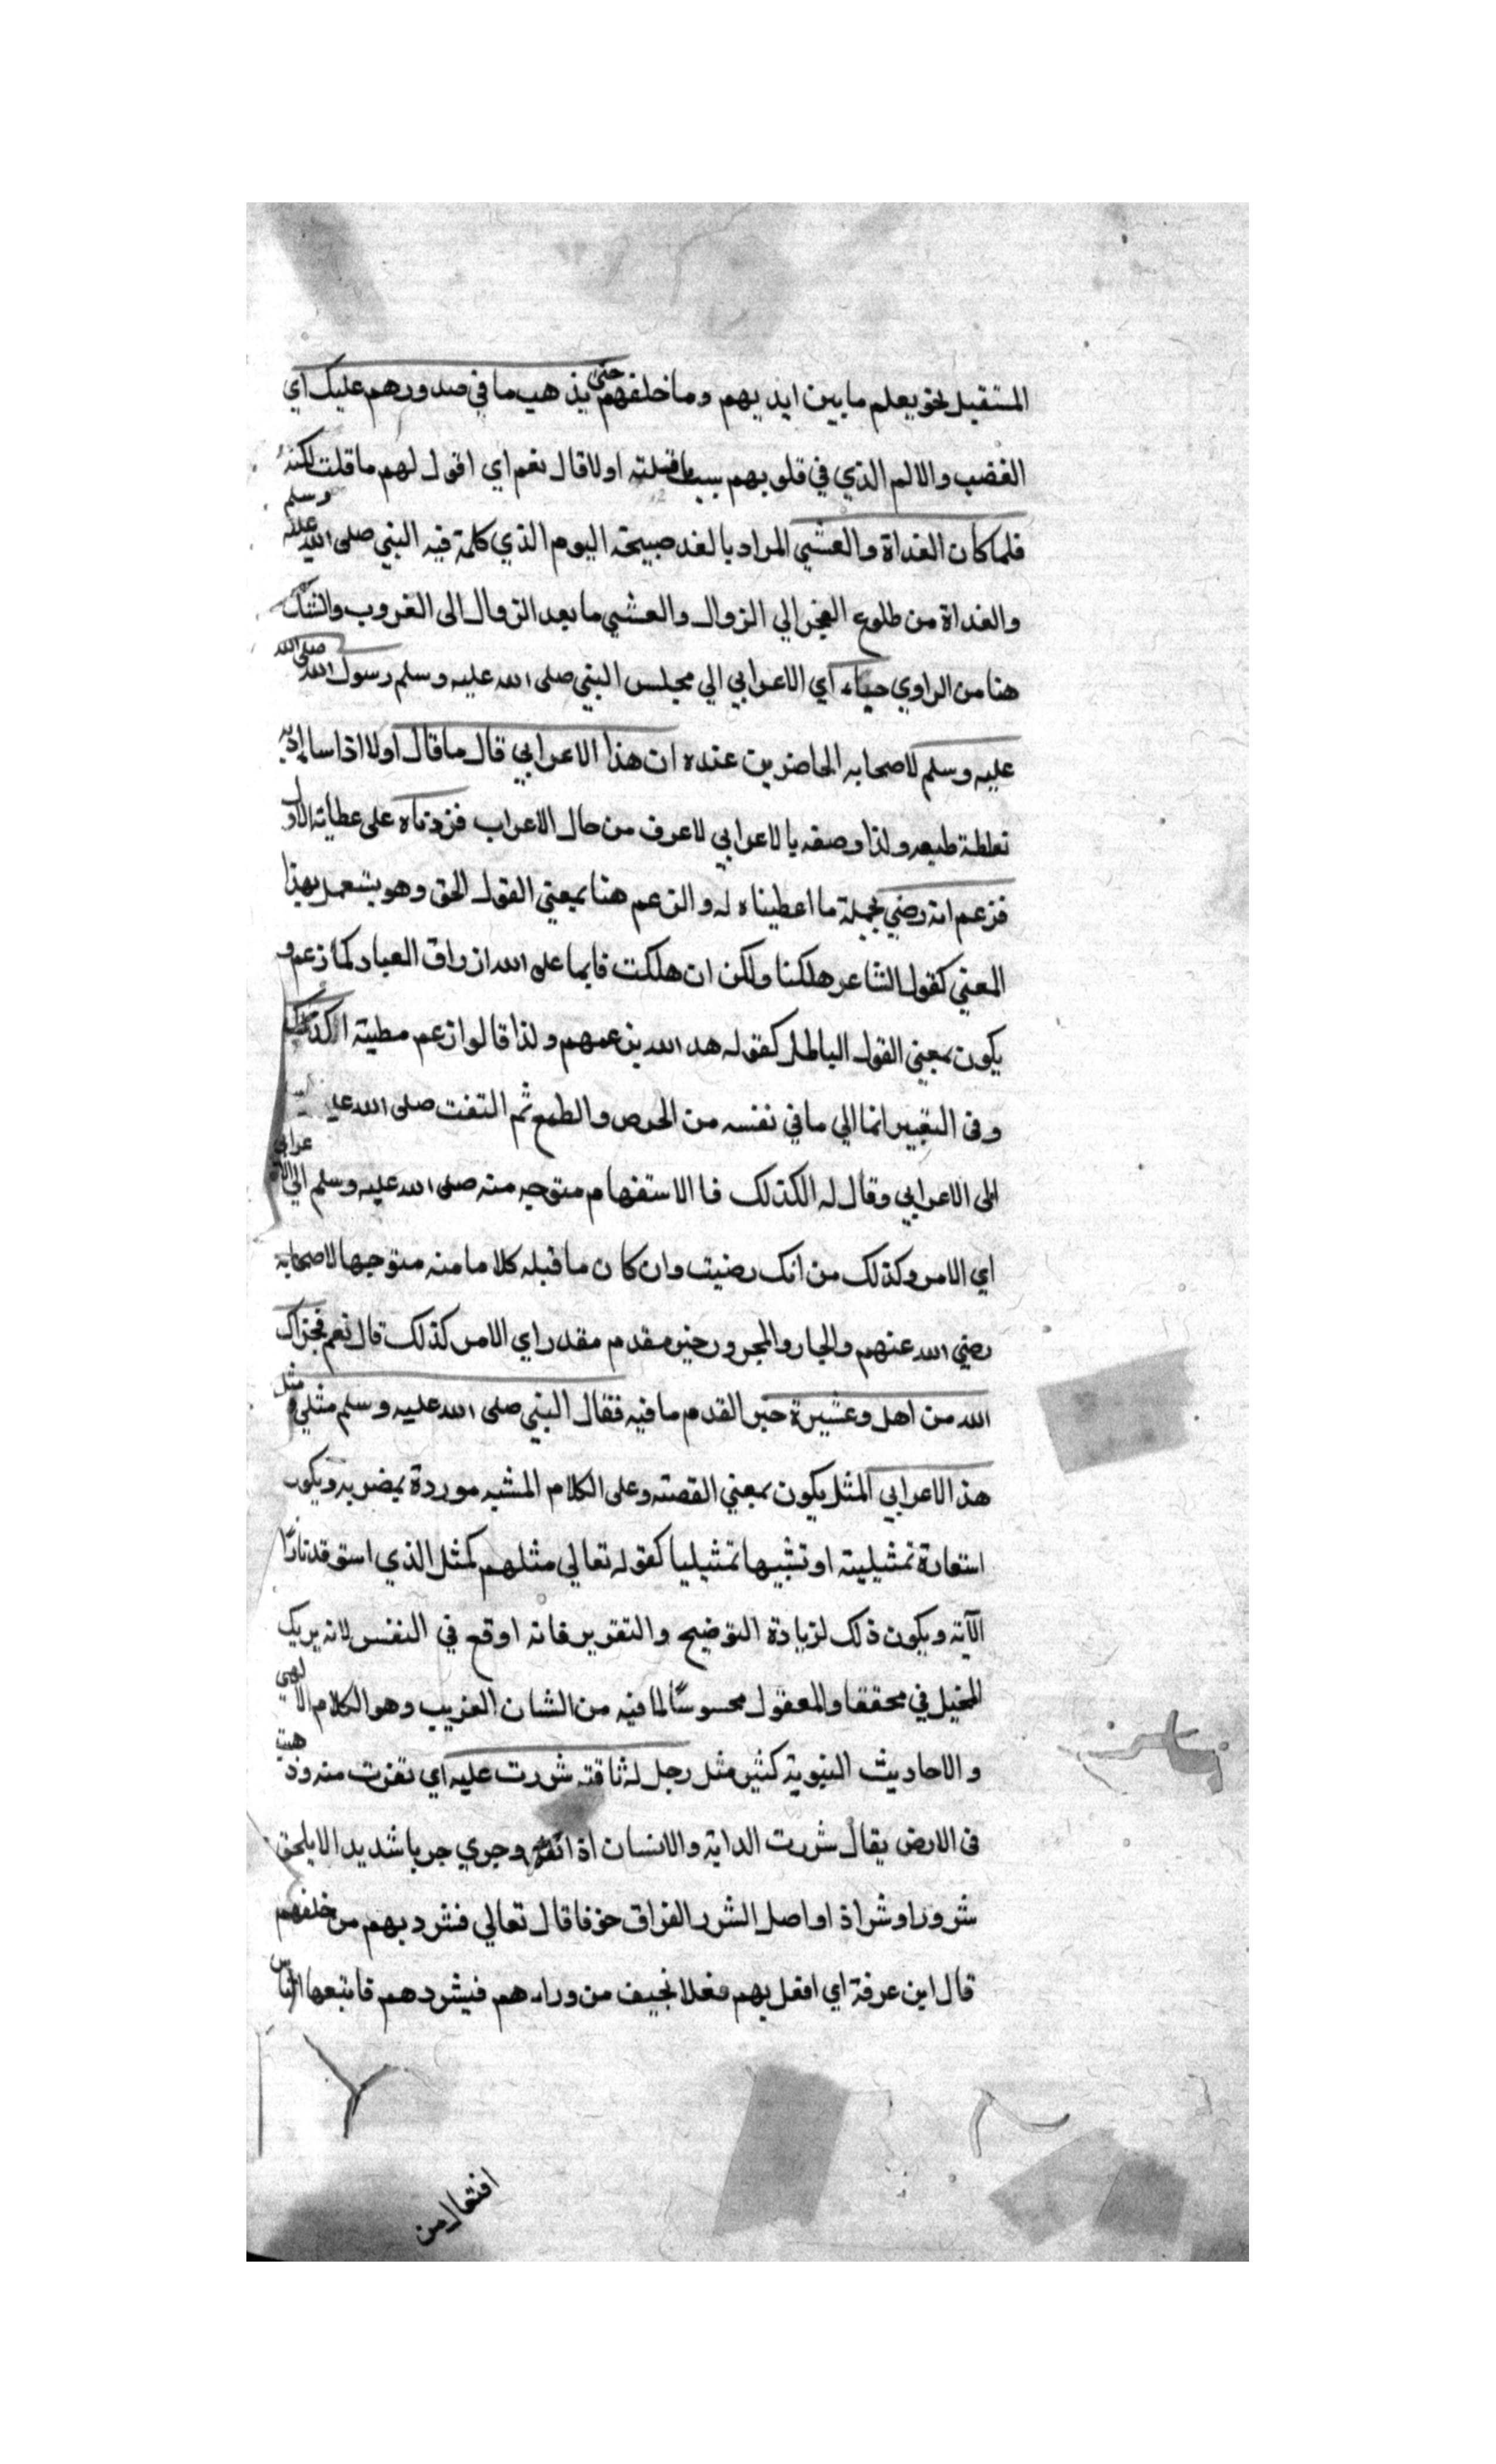 المستقبل نحو يعلم ما بين ايديهم وما خلفهم حتى يذهب ما في صدورهم عليك اي
الغضب والالم الذي في قلوبهم بسبب ما قلته اولا قال نعم اي اقول لهم ما قلت لكنه
فلما كان الغداة والعشي المراد بالغد صبيحة اليوم الذي كلمة فيه النبي صلى الله عليه وسلم
والغداة من طلوع الفجر الي الزوال والعشي ما بعد الزوال الى الغروب والشك
هنا من الراوي جاء اي الاعرابي الي مجلس النبي صلى الله عليه وسلم رسول الله صلى الله
عليه وسلم لاصحابه الحاضرين عنده ان هذا الاعرابي قال ما قال اولا اذا ساء
نغلظة طبعه ولذا وصفه بالاعرابي لاعرف من حال الاعراب فزدناه على عطائه الاول
فزعم انه رضي بجملة ما اعطيناه له والزعم هنا بمعني القول الحق وهو يشعمل بهذا
المعني كقول الشاعر هلكنا ولكن ان هلكت فانما على الله ارزاق العباد كما زعم و
يكون بمعني القول الباطل كقوله هد الله بزعمهم ولذا قالوا زعم مطية الكذب
وفي التعبير انما الي ما في نفسه من الحرص والطمع ثم التفت صلى الله
الى الاعرابي وقال له الكذلك فا الاستفهام متوجه منه صلى الله عليه وسلم الي الاعرابي
اي الامر وكذلك من انك رضيت وان كان ما قبله كلاما منه متوجها لاصحابه
رضي الله عنهم والجار والمجرور خبر مقدم مقدر اي الامر كذلك قال نعم فجزاك
الله من اهل وعشيرة خير القدم ما فيه فقال النبي صلى الله عليه وسلم مثلي ومثل
هذ الاعرابي المثل يكون بمعني القصته وعلى الكلام المشبه موردة بمضربه ويكون
استعارة تمثيليته او تشبيها تمثيليا كقوله تعالي مثلهم كمثل الذي استوقد نارًا
الآية ويكون ذلك لزيادة التوضيح والتقرير فانه اوقع في النفس لانه يريك
المخيل في محققا والمعقول محسوسًا لما فيه من الشان الغريب وهو الكلام الالهي
والاحاديث النبوية كثير مثل رجل له ناقته شردت عليه اي نفرت منه وذهبت
في الارض يقال شردت الدابة والانسان اذا نفر وجري جريا شديدا لا يلحق
شرورا وشراذ او اصل الشرر الفراق خوفا قال تعالي فشرد بهم من خلفهم
قال ابن عرفة اي افعل بهم فعلا نخيف من وراءهم فيشردهم فاتبعها الناس
افتعال من